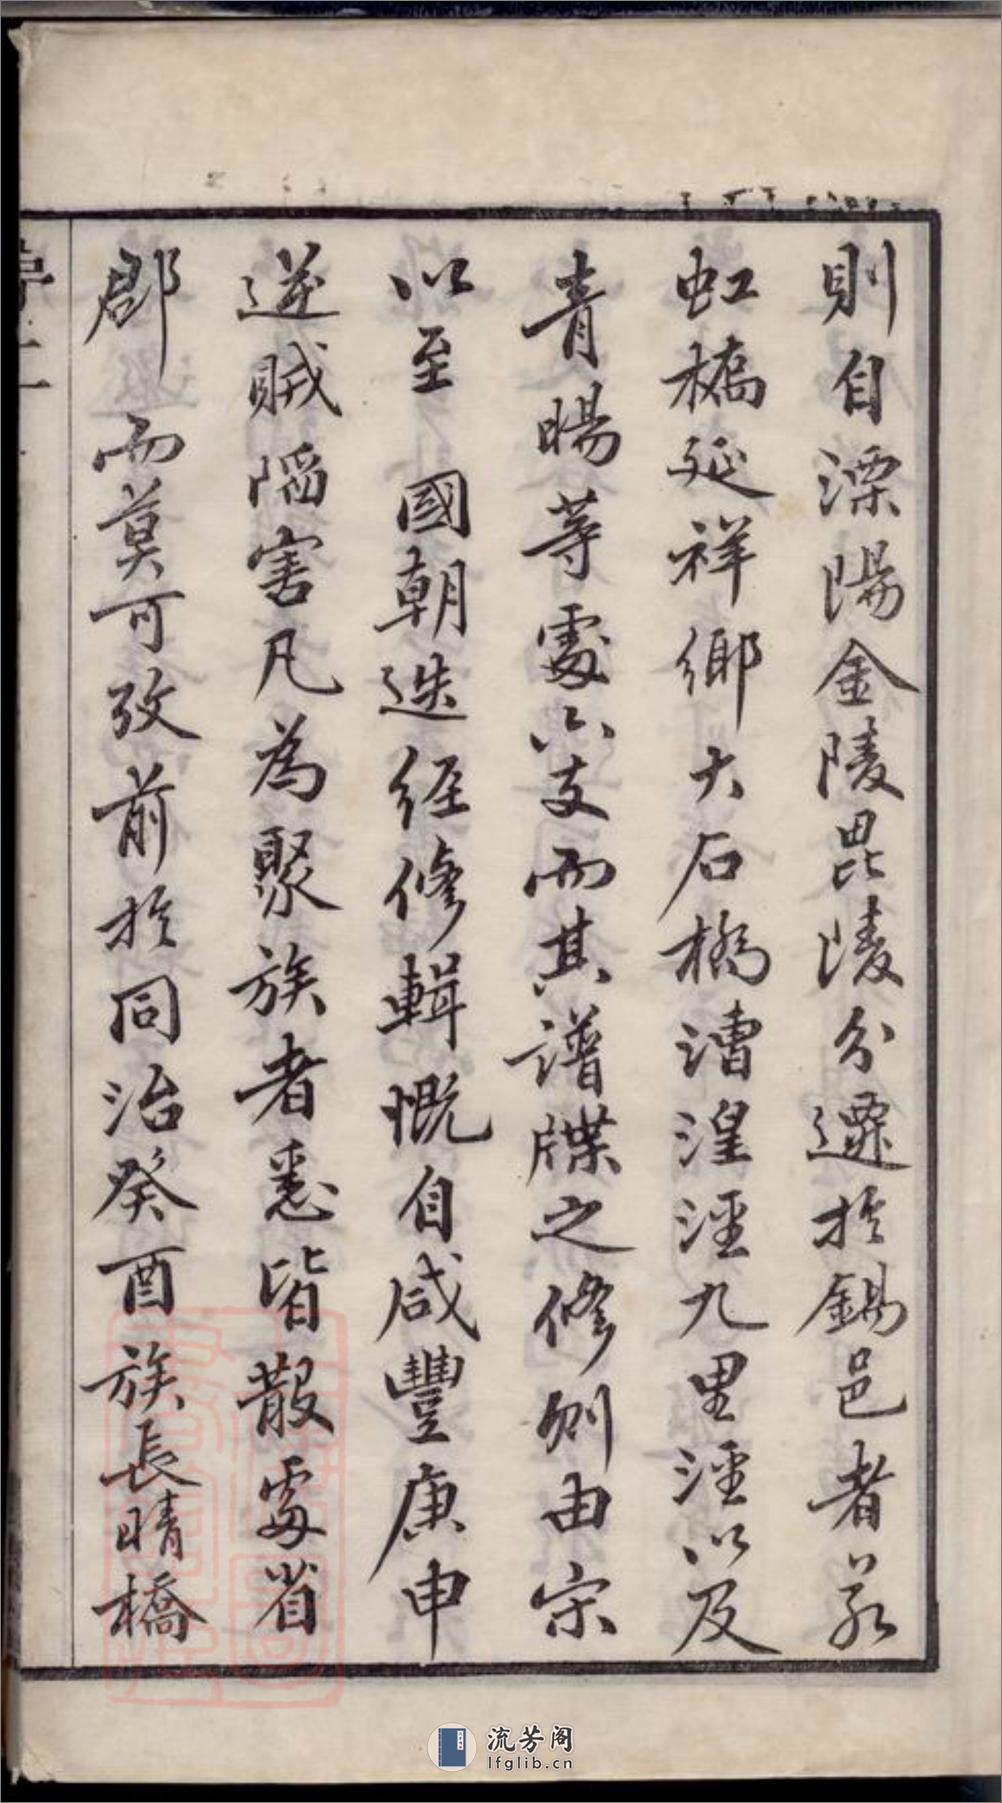 則自溧陽金陵毘陵分遷於錫邑者若
虹橋延祥鄉大石橋漕湟涇九里涇以及
青暘等處六支而其譜牒之修則由宋
以至 國朝迭經修輯慨自咸豐庚申
逆賊陷害凡為聚族者悉皆散處省
郡 而莫可攷前於同治癸酉族長晴橋
流芳阁
lfglib.cn